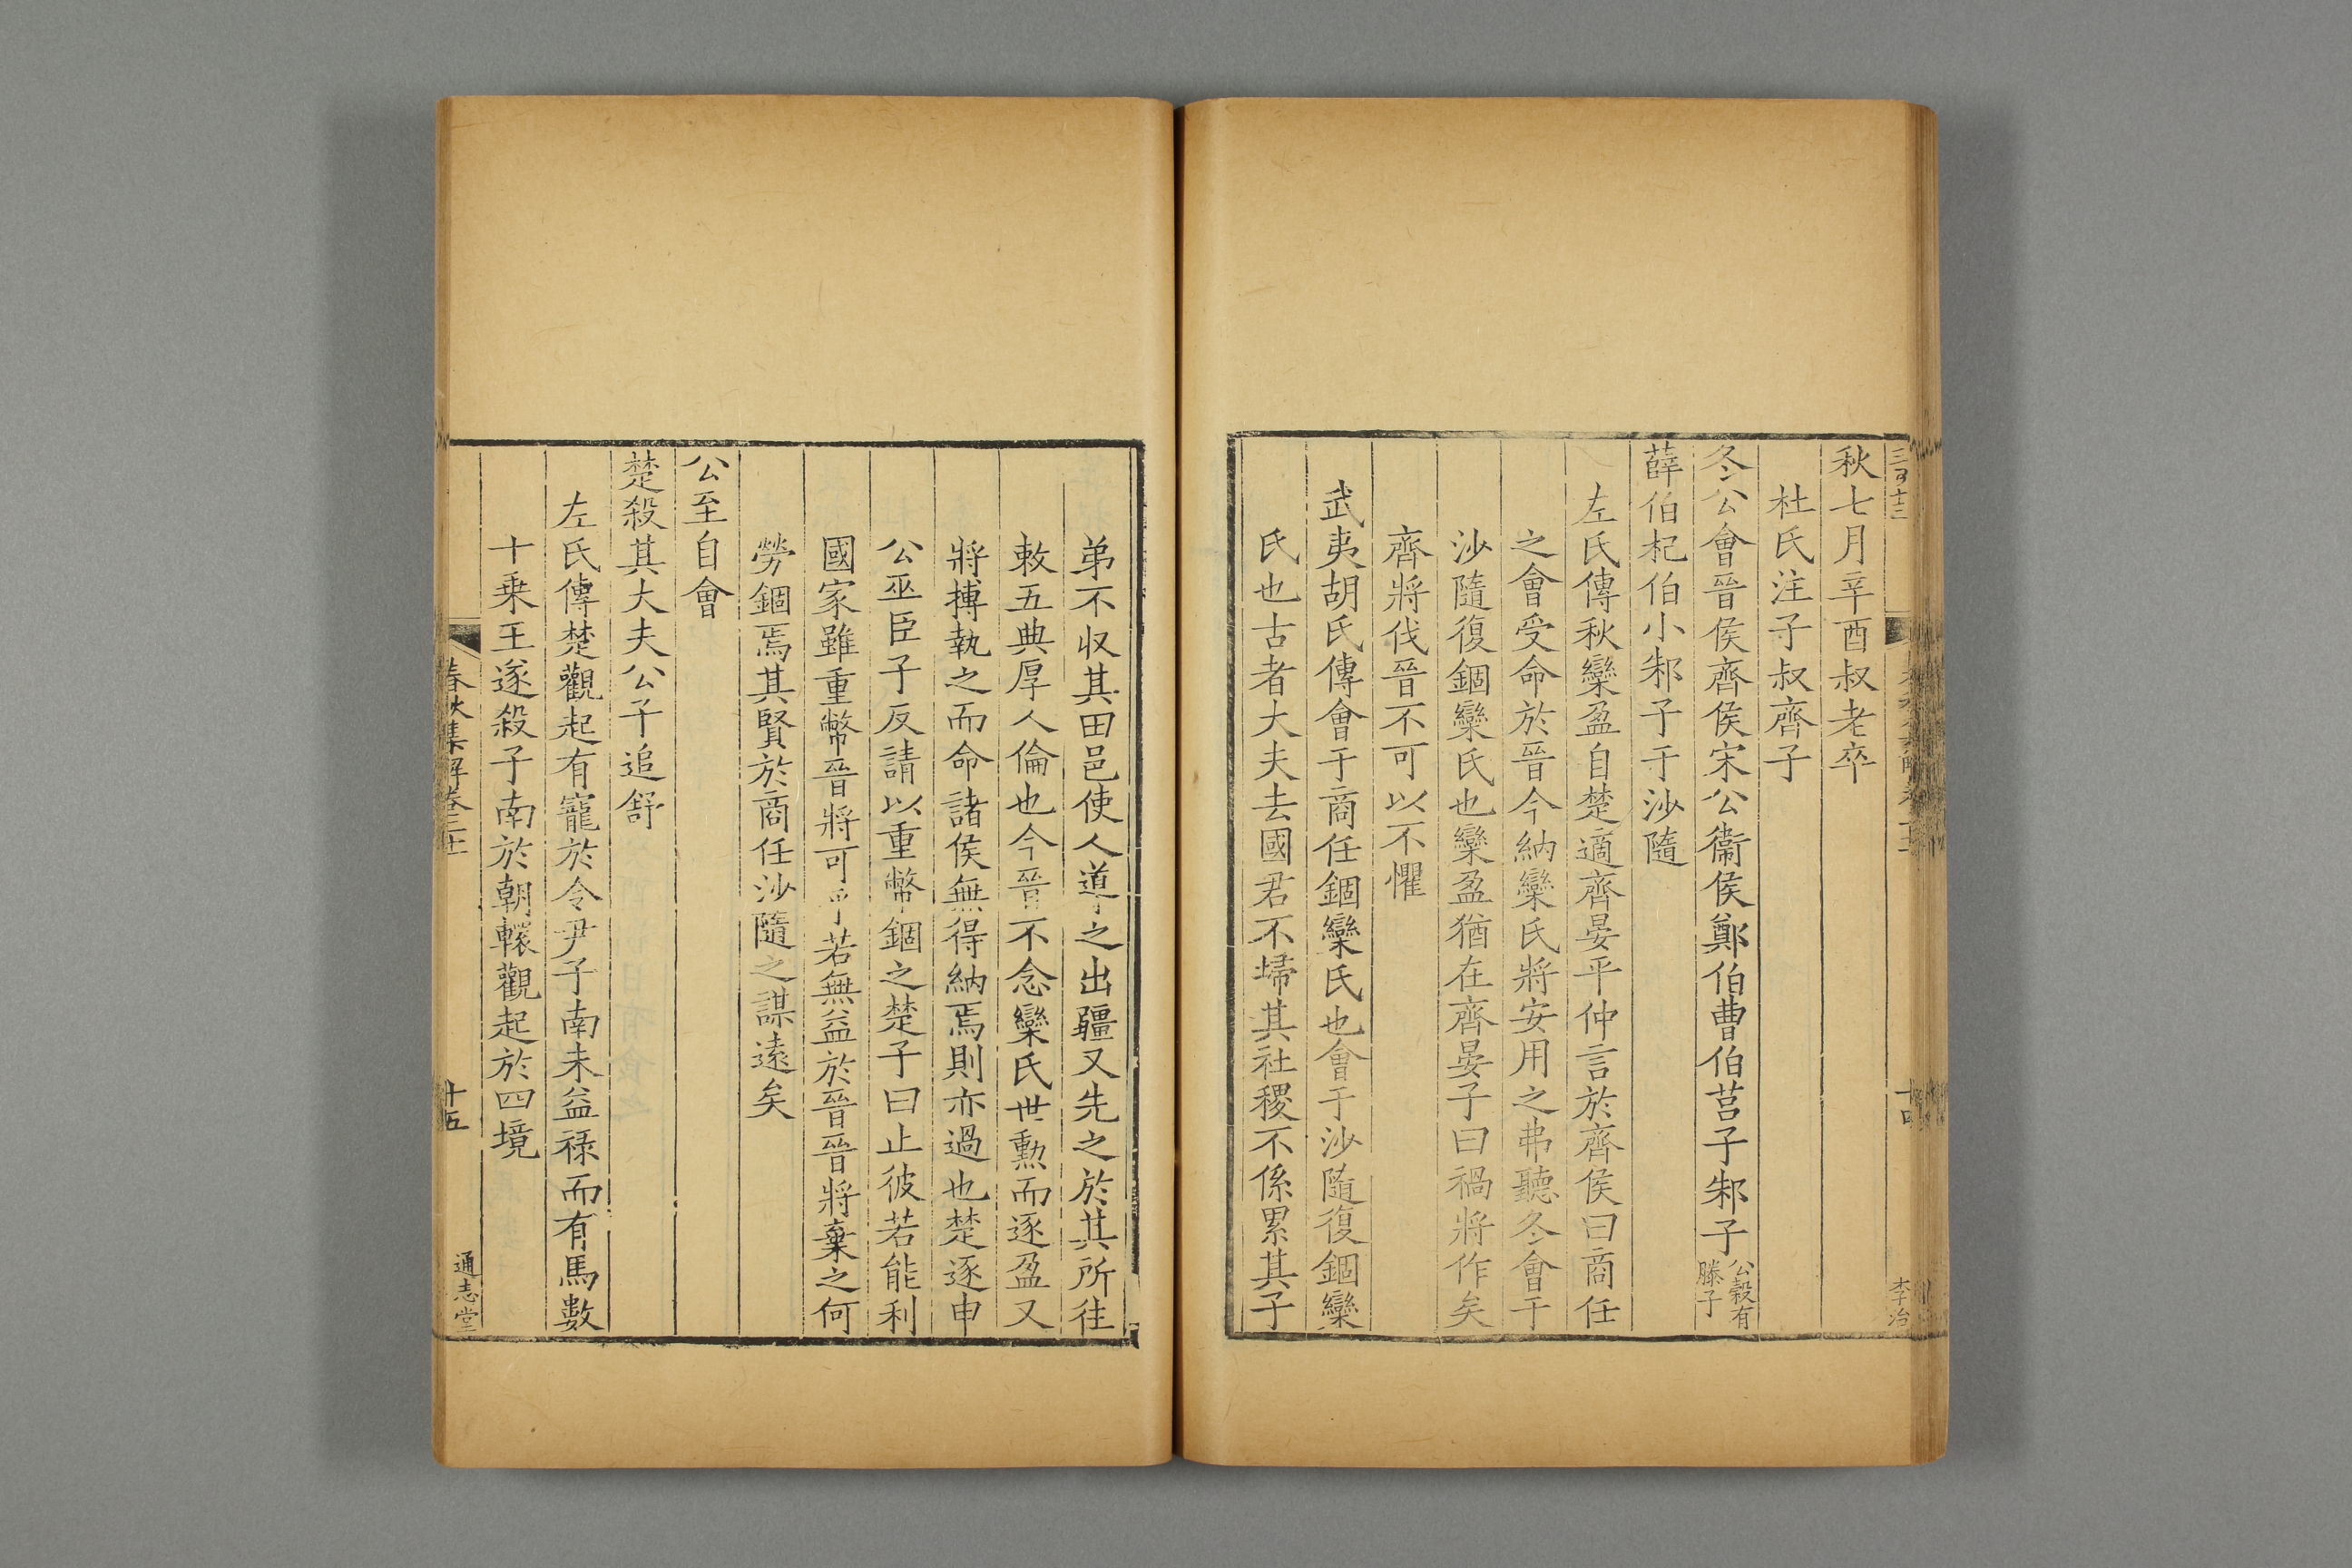 秋七月辛酉叔老卒
杜氏注子叔齊子
冬公會晉侯齊侯宋公衞侯鄭伯曹伯莒子邾子公糓有滕子
薛伯杞伯小邾子于沙隨
左氏傳秋欒盈自楚適齊晏平仲言於齊侯曰商任
之會受命於晉今納欒氏將安用之弗聽冬會于
沙隨復錮欒氏也欒盈猶在齊晏子曰禍將作矣
齊將伐晉不可以不懼
武夷胡氏傳會于商任錮欒氏也會于沙隨復錮欒
氏也古者大夫去國君不埽其社稷不係累其子
李冶
弟不収其田邑使人導之出疆又先之於其所往
敕五典厚人倫也今晉不念欒氏世勲而逐盈又
將搏執之而命諸侯無得納焉則亦過也楚逐申
公巫臣子反請以重幣錮之楚子曰止彼若能利
國家雖重幣晉將可乎若無益於晉晉將棄之何
勞錮焉其賢於商任沙隨之謀遠矣
公至自會
楚殺其大夫公子追舒
左氏傳楚觀起有寵於令尹子南未益禄而有馬數
十乗王遂殺子南於朝轘觀起於四境
春秋集解卷二十
十五
通志堂